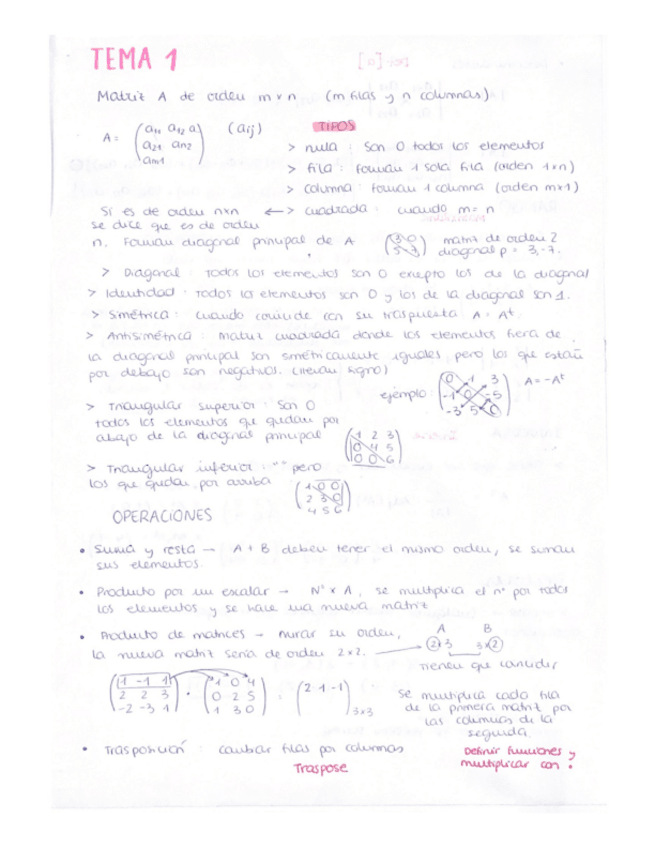 TEMA 1
Matriz A de orden m x n (m filas y n columnas)
A = (a11 a12 a (aij)
a21 an2
am1)
TIPOS
> nula : Son 0 todos los elementos
> fila : forman 1 sola fila (orden 1xn)
> columna : forman 1 columna (orden mx1)
Si es de orden nxn <-> cuadrada : cuando m = n
se dice que es de orden
n. Forman diagonal principal de A
(3 0
5 -7) matriz de orden 2
diagonal p = 3, -7.
> Diagonal : Todos los elementos son 0 excepto los de la diagonal
> Identidad : Todos los elementos son 0 y los de la diagonal son 1.
> Simétrica : cuando coincide con su traspuesta A = At.
> Antisimétrica : Matriz cuadrada donde los elementos fuera de
la diagonal principal son simétricamente iguales pero los que están
por debajo son negativos. (llevan signo)
ejemplo: (0 1 3
-1 0 -5
-3 5 0) A = -At
> Triangular superior : Son 0
todos los elementos que quedan por
abajo de la diagonal principal
(1 2 3
0 4 5
0 0 6)
> Triangular inferior " " pero
los que quedan por arriba
(1 0 0
2 3 0
4 5 6)
OPERACIONES
• Suma y resta → A + B deben tener el mismo orden, se suman
sus elementos.
• Producto por un escalar → Nº x A, se multiplica el nº por todos
los elementos y se hace una nueva matriz
• Producto de matrices → mirar su orden,
la nueva matriz sería de orden 2x2. →
A B
2x3 3x2
Tienen que coincidir
(1 -1 1
2 2 3
-2 -3 1) · (1 0 4
0 2 5
1 3 0) : (2 1 -1) 3x3
Se multiplica cada fila
de la primera matriz por
las columnas de la
segunda.
• Trasposición : cambiar filas por columnas
Traspose
Definir funciones y
multiplicar con •